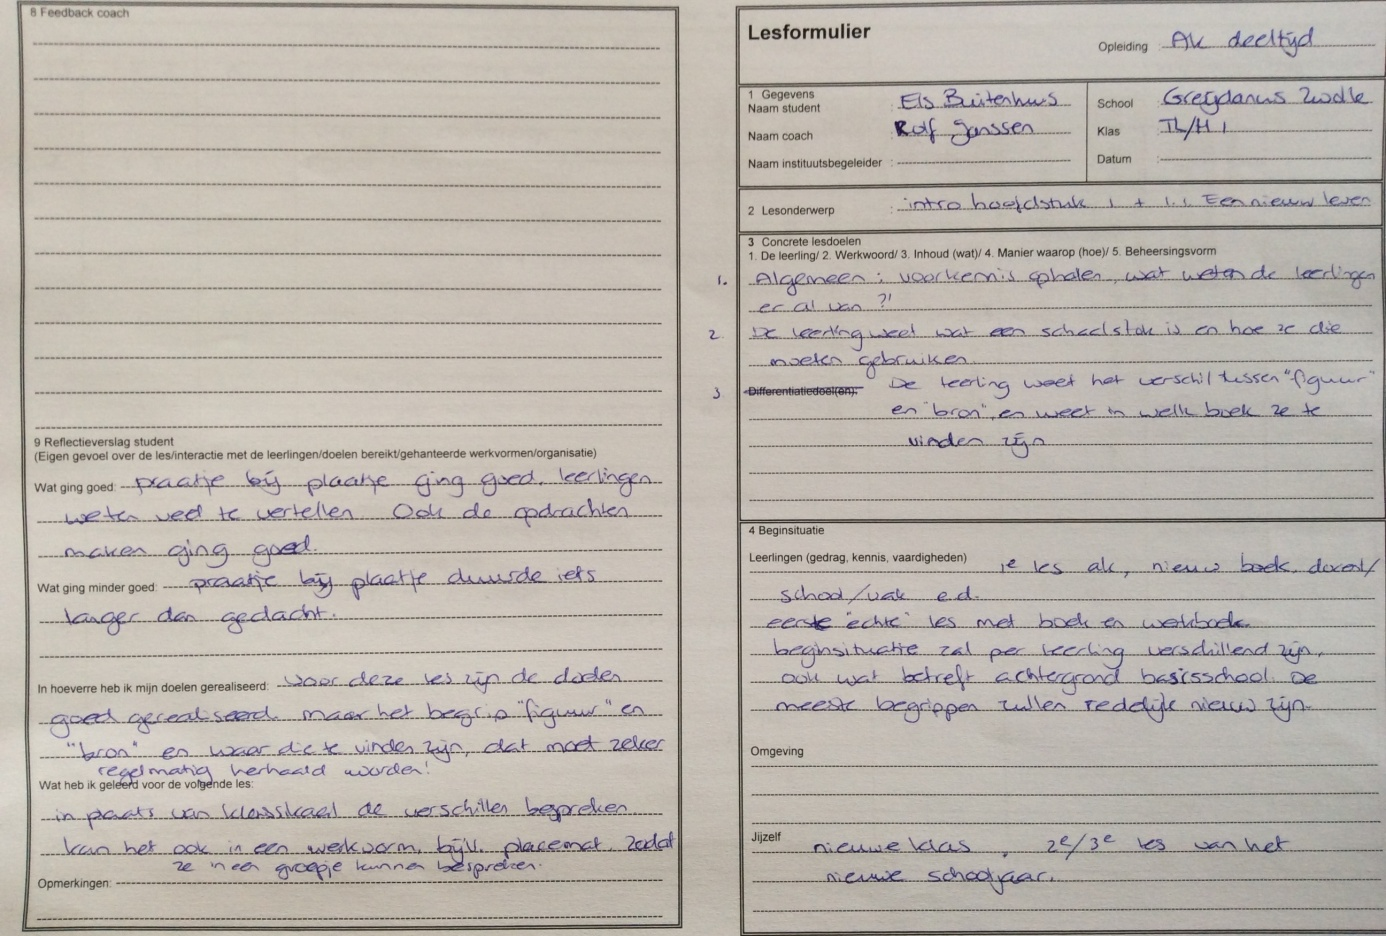 8 Feedback coach
9 Reflectieverslag student
(Eigen gevoel over de les/interactie met de leerlingen/doelen bereikt/gehanteerde werkvormen/organisatie)
Wat ging goed: praatje bij plaatje ging goed. leerlingen
weten veel te vertellen Ook de opdrachten
maken ging goed.
Wat ging minder goed: praatje bij plaatje duurde iets
langer dan gedacht.
In hoeverre heb ik mijn doelen gerealiseerd: voor deze les zijn de doelen
goed gerealiseerd. maar het begrip "figuur" en
"bron" en waar die te vinden zijn, dat moet zeker
regelmatig herhaald worden!
Wat heb ik geleerd voor de volgende les:
in plaats van klassikaal de verschillen bespreken
kan het ook in een werkvorm, bijv. placemat. zodat
ze in een groepje kunnen bespreken.
Opmerkingen:
Lesformulier
Opleiding : AK deeltijd
1 Gegevens
Naam student : Els Buitenhuis
Naam coach : Rolf Janssen
Naam instituutsbegeleider :
School Greijdanus Zwolle
Klas TL/H 1
Datum :
2 Lesonderwerp : intro hoofdstuk 1 + 1.1 Een nieuw leven
3 Concrete lesdoelen
1. De leerling/ 2. Werkwoord/ 3. Inhoud (wat)/ 4. Manier waarop (hoe)/ 5. Beheersingsvorm
1. Algemeen : voorkennis ophalen, wat weten de leerlingen
er al van ?!
2 De leerling weet wat een schaalstok is en hoe ze die
moeten gebruiken
3 Differentiatiedoel(en): De leerling weet het verschil tussen "figuur"
en "bron", en weet in welk boek ze te
vinden zijn
4 Beginsituatie
Leerlingen (gedrag, kennis, vaardigheden) 1e les ak, nieuw boek, docent/
school/vak e.d.
eerste "echte" les met boek en werkboek.
beginsituatie zal per leerling verschillend zijn,
ook wat betreft achtergrond basisschool. De
meeste begrippen zullen redelijk nieuw zijn.
Omgeving
Jijzelf nieuwe klas, 2e/3e les van het
nieuwe schooljaar.